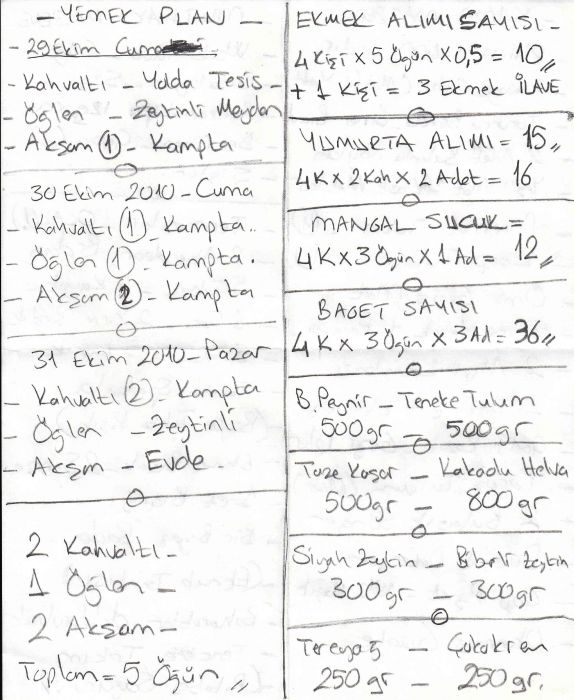 - YEMEK PLAN -
- 29 Ekim Cuma
- Kahvaltı - Yolda Tesis -
- Öğlen - Zeytinli Meydan
- Akşam 1 - Kampta
30 Ekim 2010 - Cuma
- Kahvaltı 1 - Kampta..
- Öğlen 1 - Kampta.
- Akşam 2 - Kampta
31 Ekim 2010 - Pazar
- Kahvaltı 2 - Kampta
- Öğlen - Zeytinli
- Akşam - Evde
2 Kahvaltı -
1 Öğlen -
2 Akşam -
Toplam = 5 Öğün //
EKMEK ALIMI SAYISI -
4 Kişi x 5 Öğün x 0,5 = 10 //
+ 1 Kişi = 3 Ekmek İLAVE
YUMURTA ALIMI = 15 //
4K x 2 Kah x 2 Adet = 16
MANGAL SUCUK =
4K x 3 Öğün x 1 Ad = 12 //
BAGET SAYISI
4 K x 3 Öğün x 3 Ad = 36 //
B. Peynir - Teneke Tulum
500 gr - 500 gr
Taze Kaşar - Kakaolu Helva
500 gr - 800 gr
Siyah Zeytin - Biberli Zeytin
300 gr - 300 gr
Tereyağ - Çikokrem
250 gr - 250 gr.